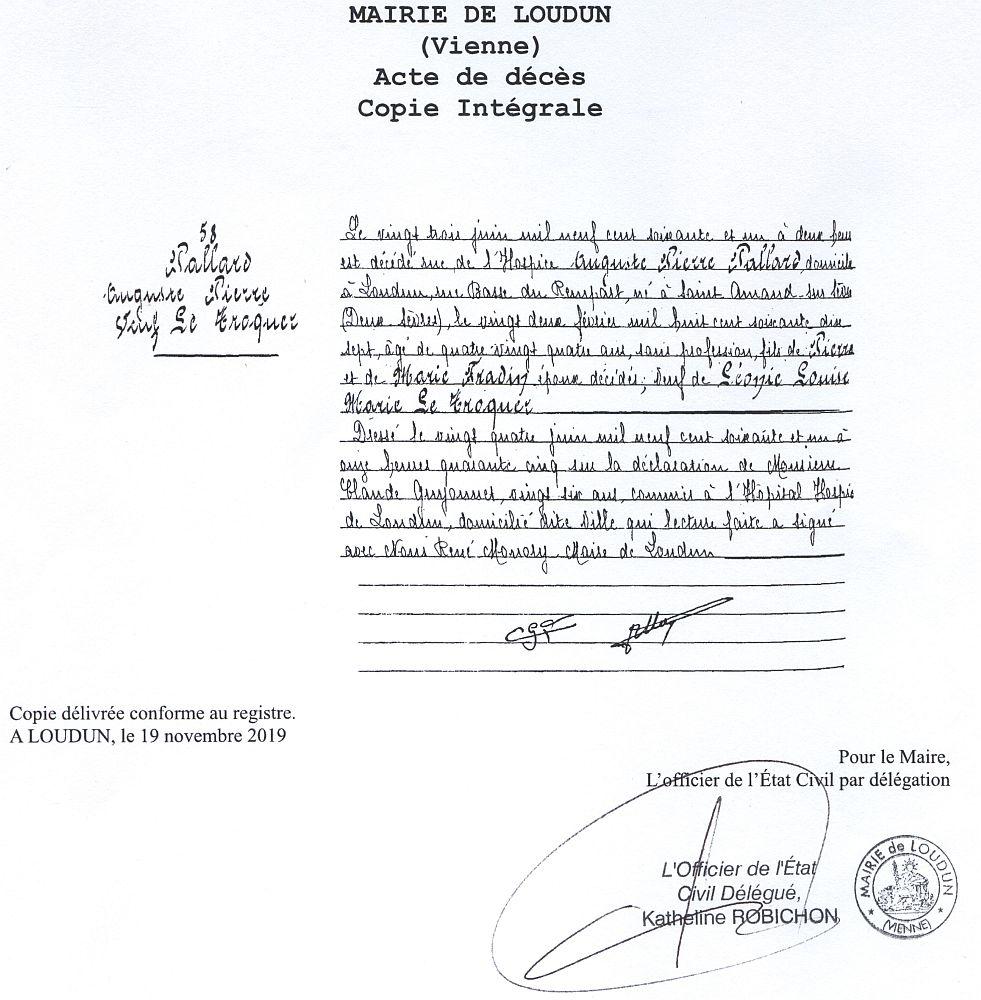 MAIRIE DE LOUDUN
(Vienne)
Acte de décès
Copie Intégrale
58
Pallard
Auguste Pierre
Veuf Le Troquer
Le vingt trois juin mil neuf cent soixante et un à deux heures
est décédé rue de l'Hospice Auguste Pierre Pallard, domicilié
à Loudun, rue Basse du Rempart, né à Saint Amand sur Sèvre
(Deux Sèvres), le vingt deux février mil huit cent soixante dix
sept, âgé de quatre vingt quatre ans, sans profession, fils de Pierre
et de Marie Fradin époux décédés; Veuf de Léonie Louise
Marie Le Troquer
Dressé le vingt quatre juin mil neuf cent soixante et un à
onze heures quarante cinq sur la déclaration de Monsieur
Claude Guyonnet, vingt six ans, commis à l'Hôpital Hospice
de Loudun, domicilié dite Ville qui lecture faite a signé
avec Nous René Monory Maire de Loudun
Copie délivrée conforme au registre.
A LOUDUN, le 19 novembre 2019
Pour le Maire,
L'officier de l'État Civil par délégation
L'Officier de l'État
Civil Délégué,
Katheline ROBICHON
MAIRIE de LOUDUN
(VIENNE)